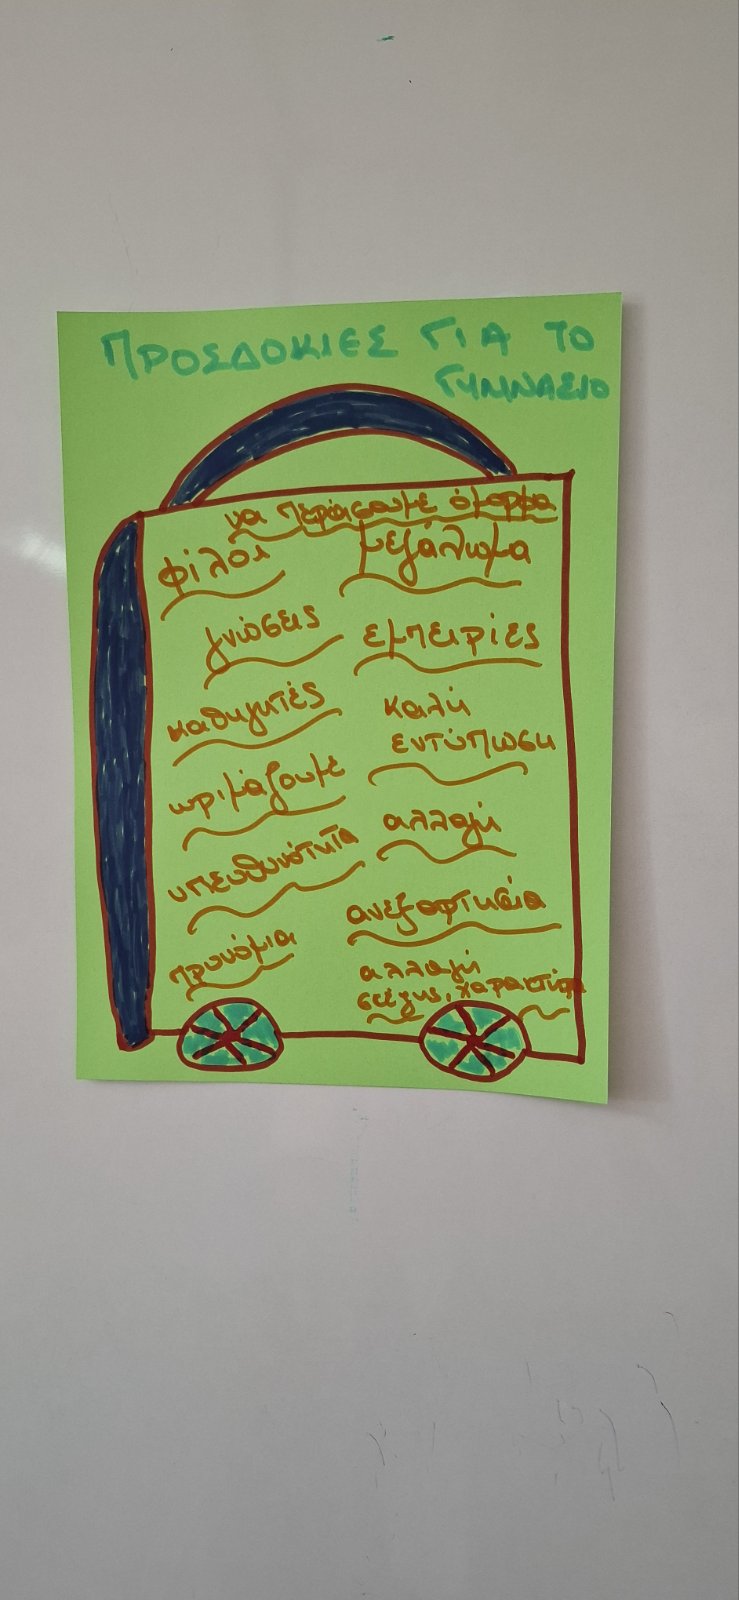 ΠΡΟΣΔΟΚΙΕΣ ΓΙΑ ΤΟ
ΓΥΜΝΑΣΙΟ
να περάσουμε όμορφα
φίλοι
γνώσεις
καθηγητές
ωριμάζουμε
υπευθυνότητα
προνόμια
μεγάλωμα
εμπειρίες
καλή
εντύπωση
αλλαγή
ανεξαρτησία
αλλαγή
στέγης, χαρακτήρα